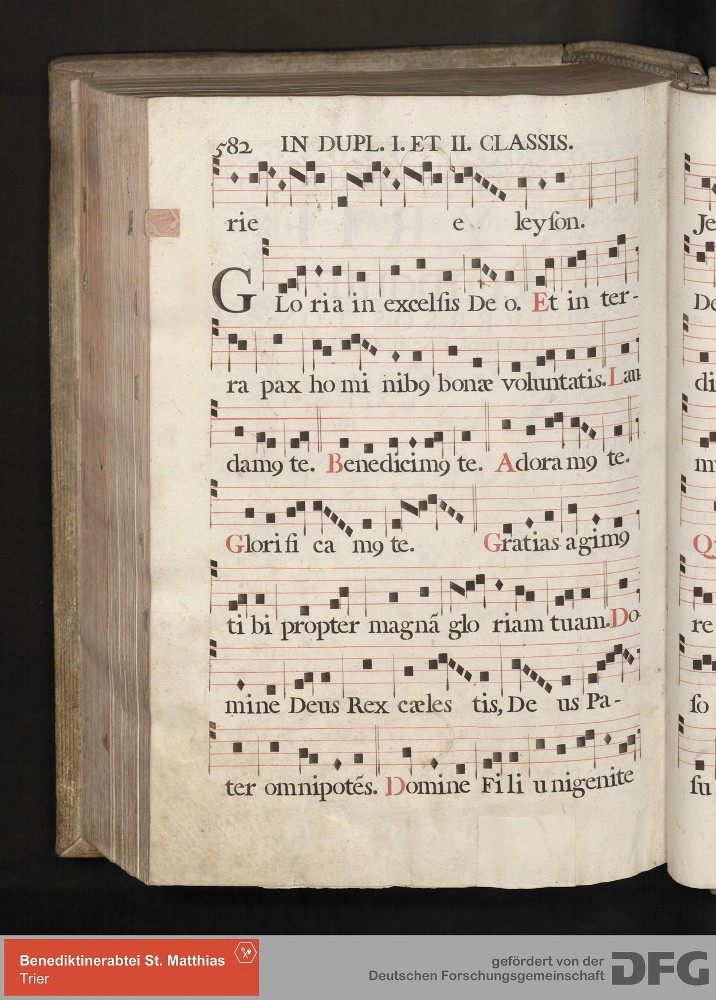 582 IN DUPL. I. ET II. CLASSIS.
rie e leyſon.
GLo ria in excelſis De o. Et in ter-
ra pax ho mi nibꝯ bonæ voluntatis. Lau
damꝯ te. Benedicimꝯ te. Adora mꝯ te.
Glori fi ca mꝯ te. Gratias agimꝯ
ti bi propter magnã glo riam tuam. Do-
mine Deus Rex cæles tis, De us Pa-
ter omnipotẽs. Domine Fi li u nigenite
Je
De
di
m
Q
re
ſo
ſu
Benediktinerabtei St. Matthias
Trier
gefördert von der
Deutschen Forschungsgemeinschaft
DFG